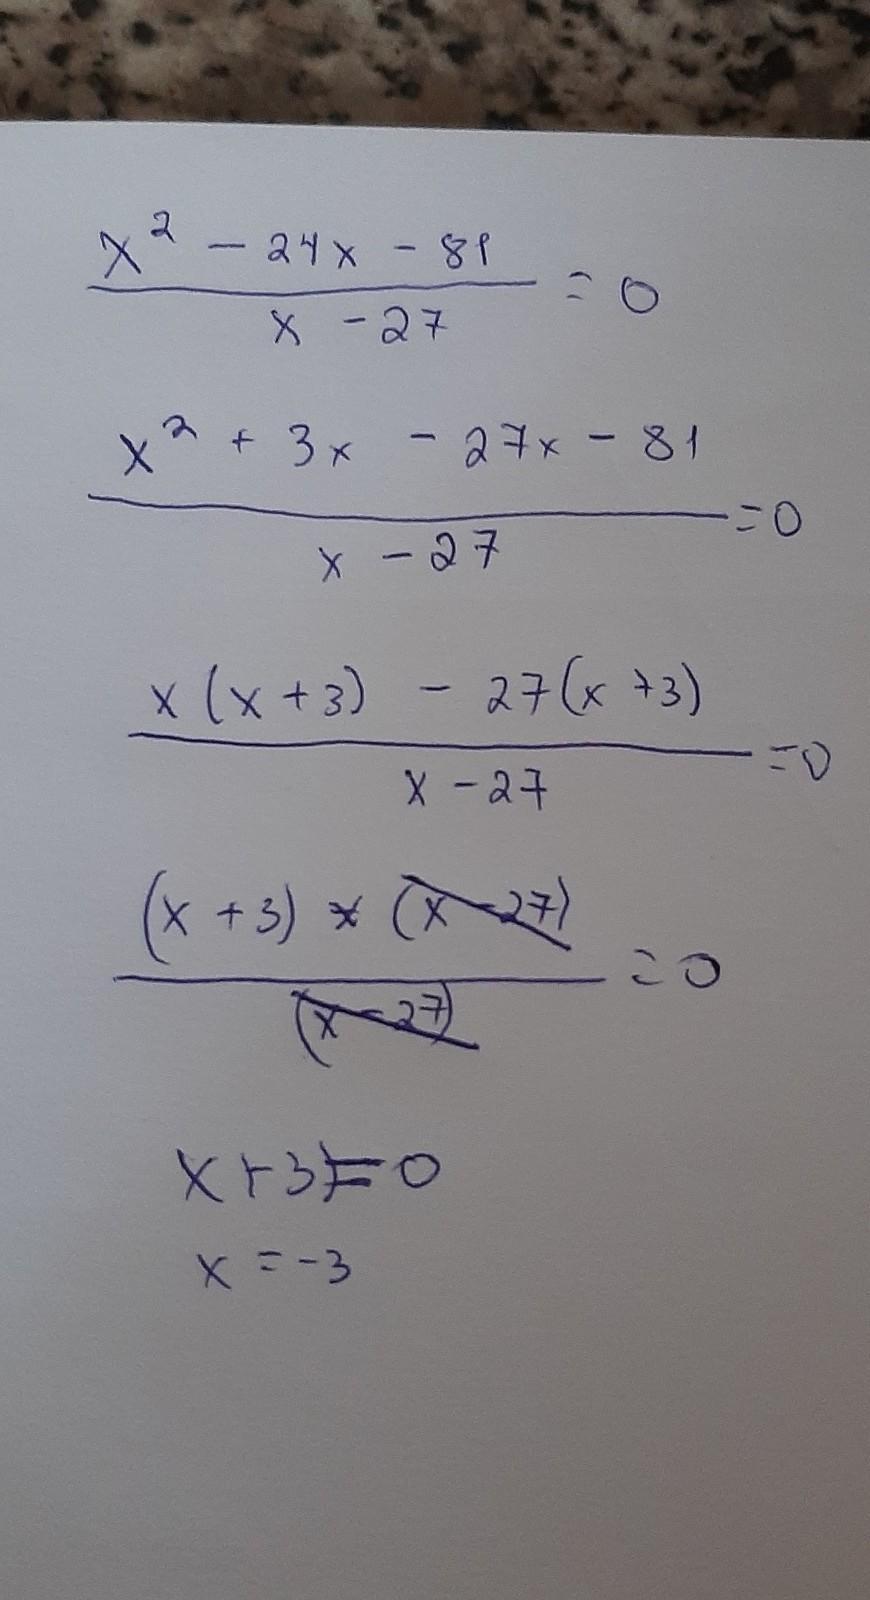 x² - 24x - 81
x - 27
= 0
x² + 3x - 27x - 81
x - 27
= 0
x (x + 3) - 27 (x + 3)
x - 27
= 0
(x + 3) * (x - 27)
(x - 27)
= 0
x + 3) = 0
x = -3